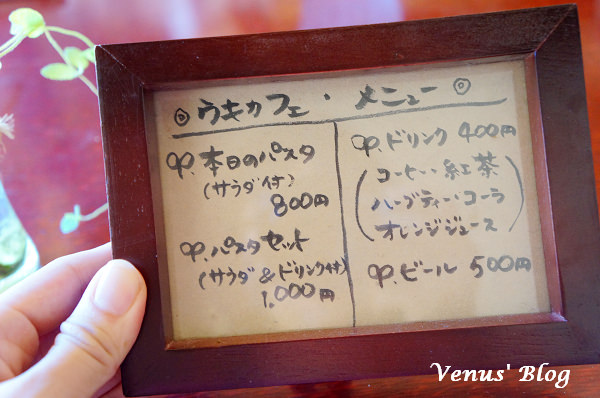 ◎ウキカフェ・メニュー◎
本日のパスタ
(サラダ付)
800円
パスタセット
(サラダ&ドリンク付)
1,000円
ドリンク 400円
(コーヒー・紅茶
ハーブティー・コーラ
オレンジジュース)
ビール 500円
Venus' Blog